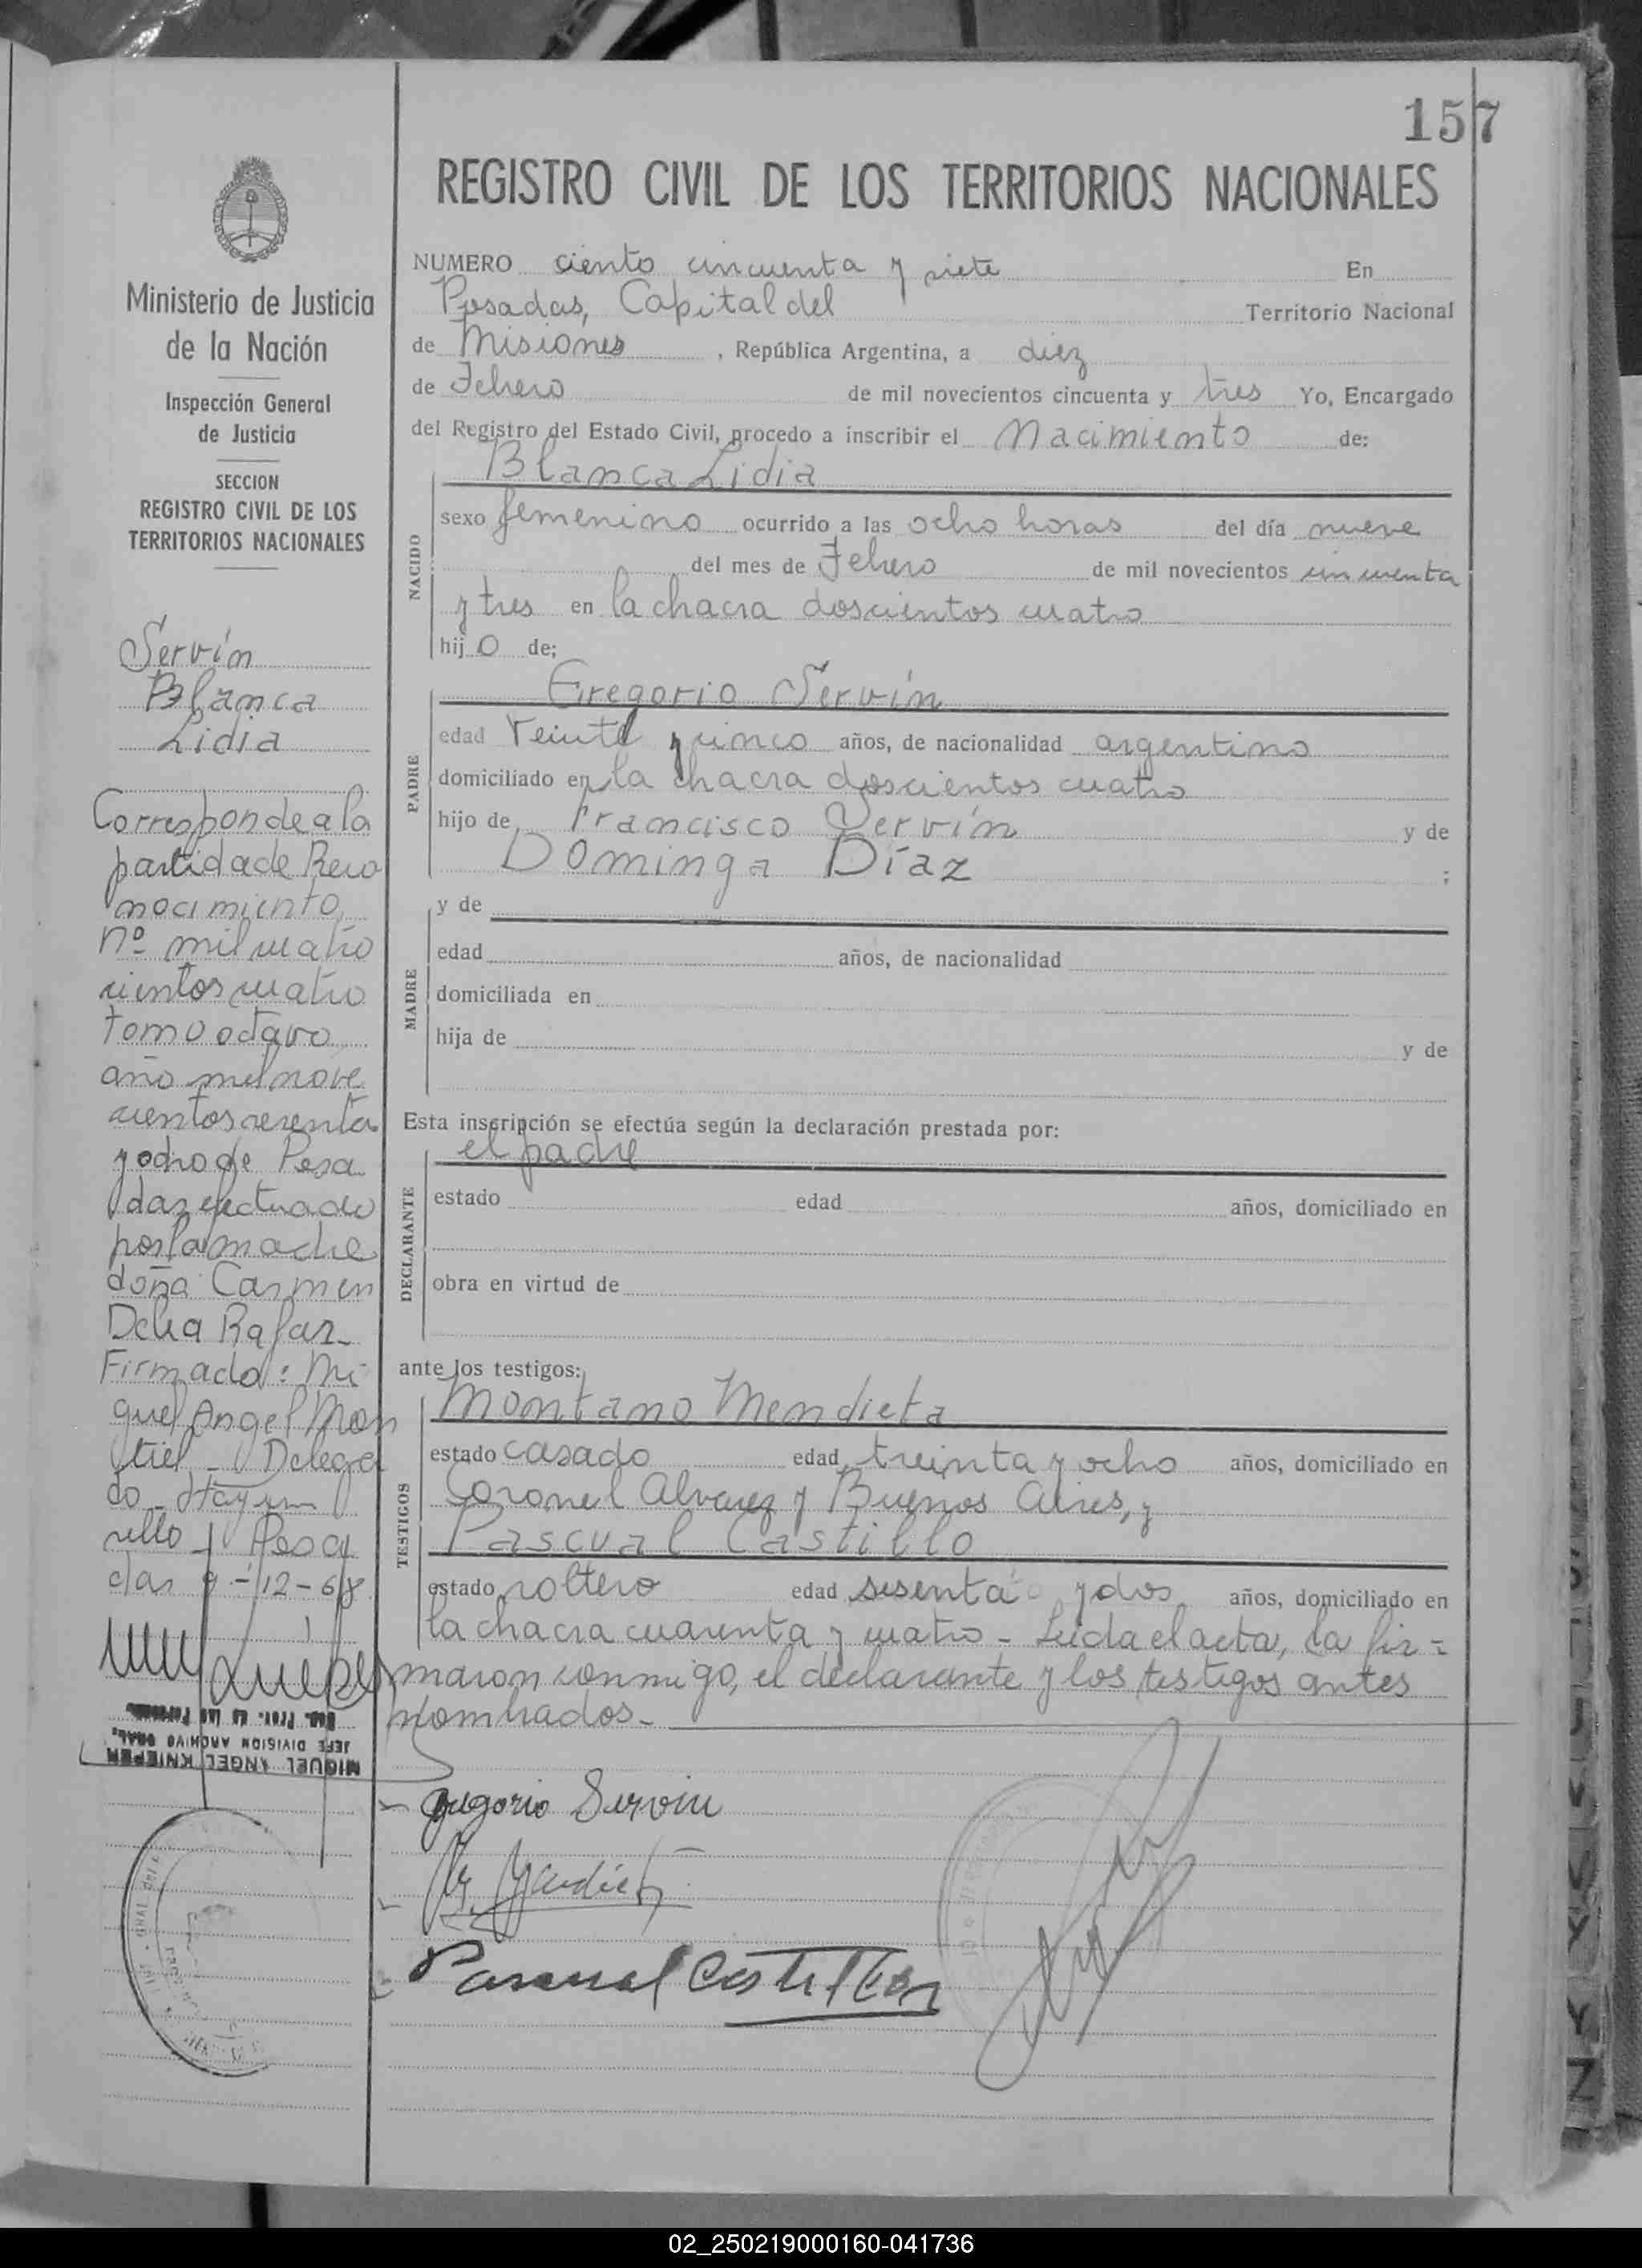 157
REGISTRO CIVIL DE LOS TERRITORIOS NACIONALES
Ministerio de Justicia
de la Nación
Inspección General
de Justicia
SECCION
REGISTRO CIVIL DE LOS
TERRITORIOS NACIONALES
Servín
Blanca
Lidia
Corresponde a la
partida de Reco
nocimiento
nº mil cuatro
cientos cuatro
tomo octavo
año mil nove
cientos sesenta
y ocho de Posa
das efectuado
por la madre
doña Carmen
Delia
Firmado: Mi
guel Angel Mon
tiel - Delega
do - Hay un
sello - Posa
das 9-12-68
JEFE DIVISION ARCHIVO GRAL.
MIGUEL ANGEL KNIEPER
NUMERO ciento cincuenta y siete En
Posadas, Capital del Territorio Nacional
de Misiones, República Argentina, a diez
de Febrero de mil novecientos cincuenta y tres Yo, Encargado
del Registro del Estado Civil, procedo a inscribir el Nacimiento de:
Blanca Lidia
NACIDO
sexo femenino ocurrido a las ocho horas del día nueve
del mes de Febrero de mil novecientos cincuenta
y tres en la chacra doscientos cuatro
hijo de;
Gregorio Servín
PADRE
edad veinte y cinco años, de nacionalidad argentino
domiciliado en la chacra doscientos cuatro
hijo de Francisco Servín y de
Dominga Díaz ;
MADRE
y de
edad años, de nacionalidad
domiciliada en
hija de y de
Esta inscripción se efectúa según la declaración prestada por:
el padre
DECLARANTE
estado edad años, domiciliado en
obra en virtud de
ante los testigos:
Montano Mendieta
TESTIGOS
estado casado edad treinta y ocho años, domiciliado en
Coronel Alvarez y Buenos Aires, y
Pascual Castillo
estado soltero edad sesenta y dos años, domiciliado en
la chacra cuarenta y cuatro - Leida el acta, la fir=
maron conmigo, el declarante y los testigos antes
nombrados.-
Gregorio Servin
Pascual Castillo
02_250219000160-041736